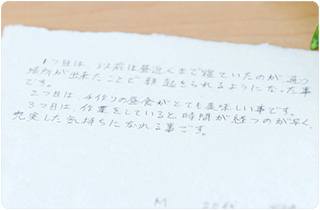 1つ目は、以前は昼近くまで寝ていたのが、通う
場所が出来たことで朝起きられるようになった事
です。
2つ目は、手作りの昼食がとても美味しい事です。
3つ目は、作業をしていると、時間が経つのが早く、
充実した気持ちになれる事です。
M